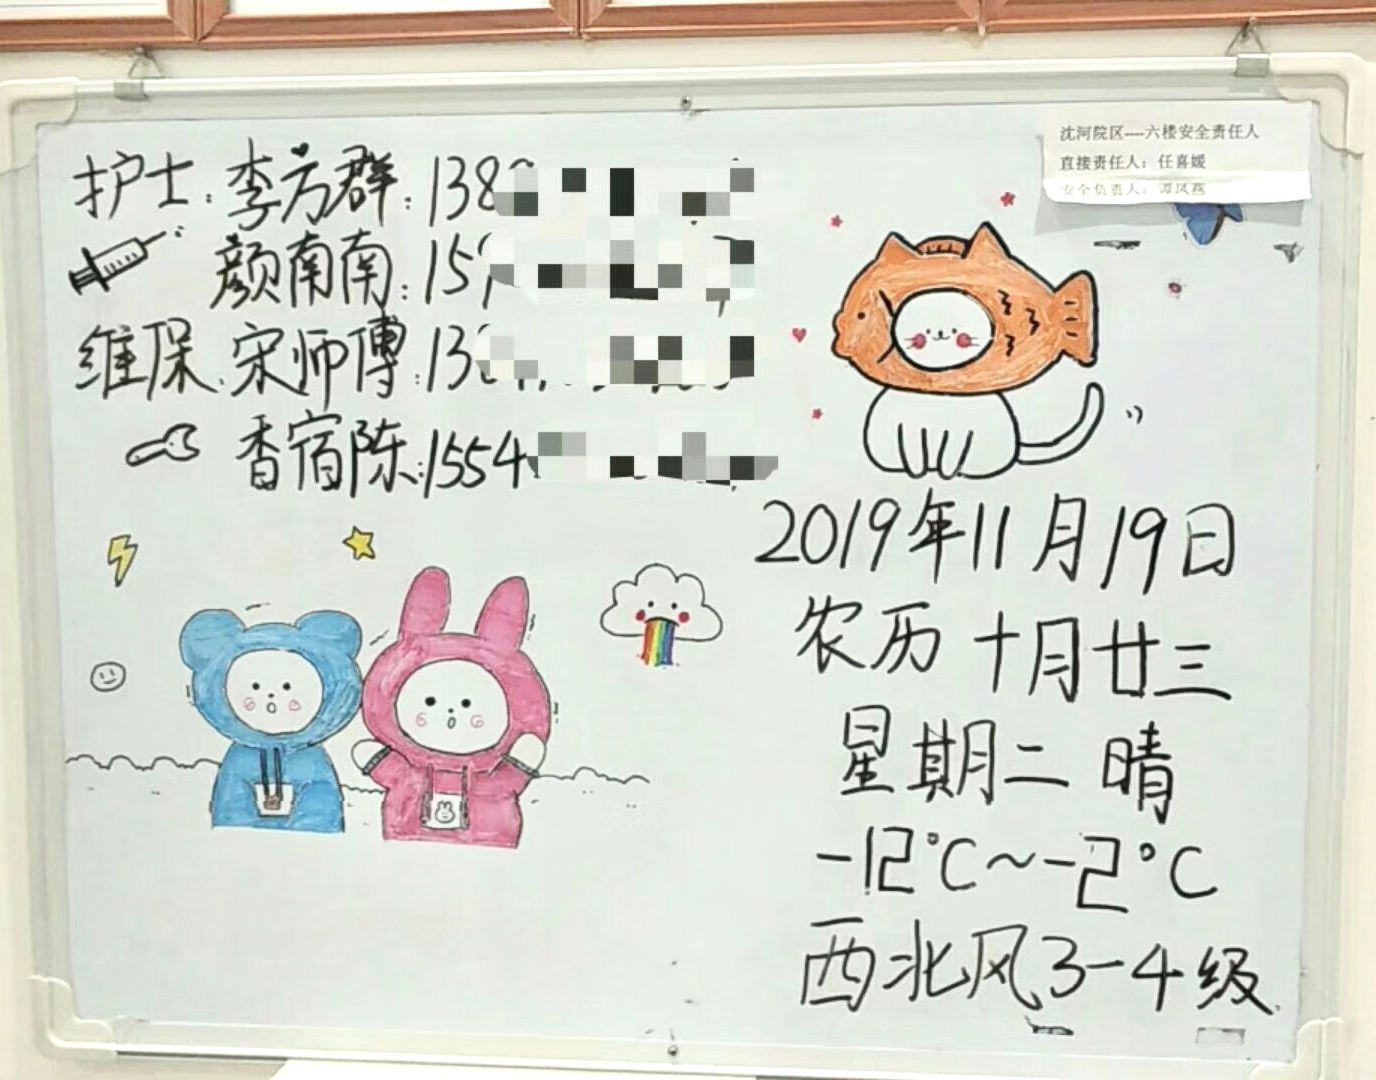 护士:李方群:138
颜南南:15
维保:宋师傅:13
香宿陈:1554
沈河院区----六楼安全责任人
直接责任人:任喜媛
安全负责人:谭凤燕
2019年11月19日
农历十月廿三
星期二 晴
-12°C~-2°C
西北风3-4级